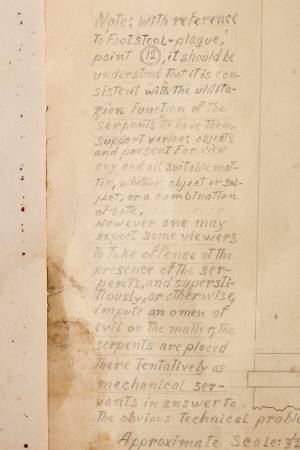 Note: with reference
to Footstool-plaque,
point 12, it should be
understood that it is con-
sistent with the utilita-
rian function of the
serpents to have them
support various objects
and present for view
any and all suitable mat-
ter, whether object or sub-
ject, or a combination
of both.
However one may
expect some viewers
to take offence at the
presence of the ser-
pents, and supersti-
tiously, or otherwise,
impute an omen of
evil on the matter, the
serpents are placed
there tentatively as
mechanical ser-
vants in answer to
the obvious technical proble
Approximate Scale: 3/32